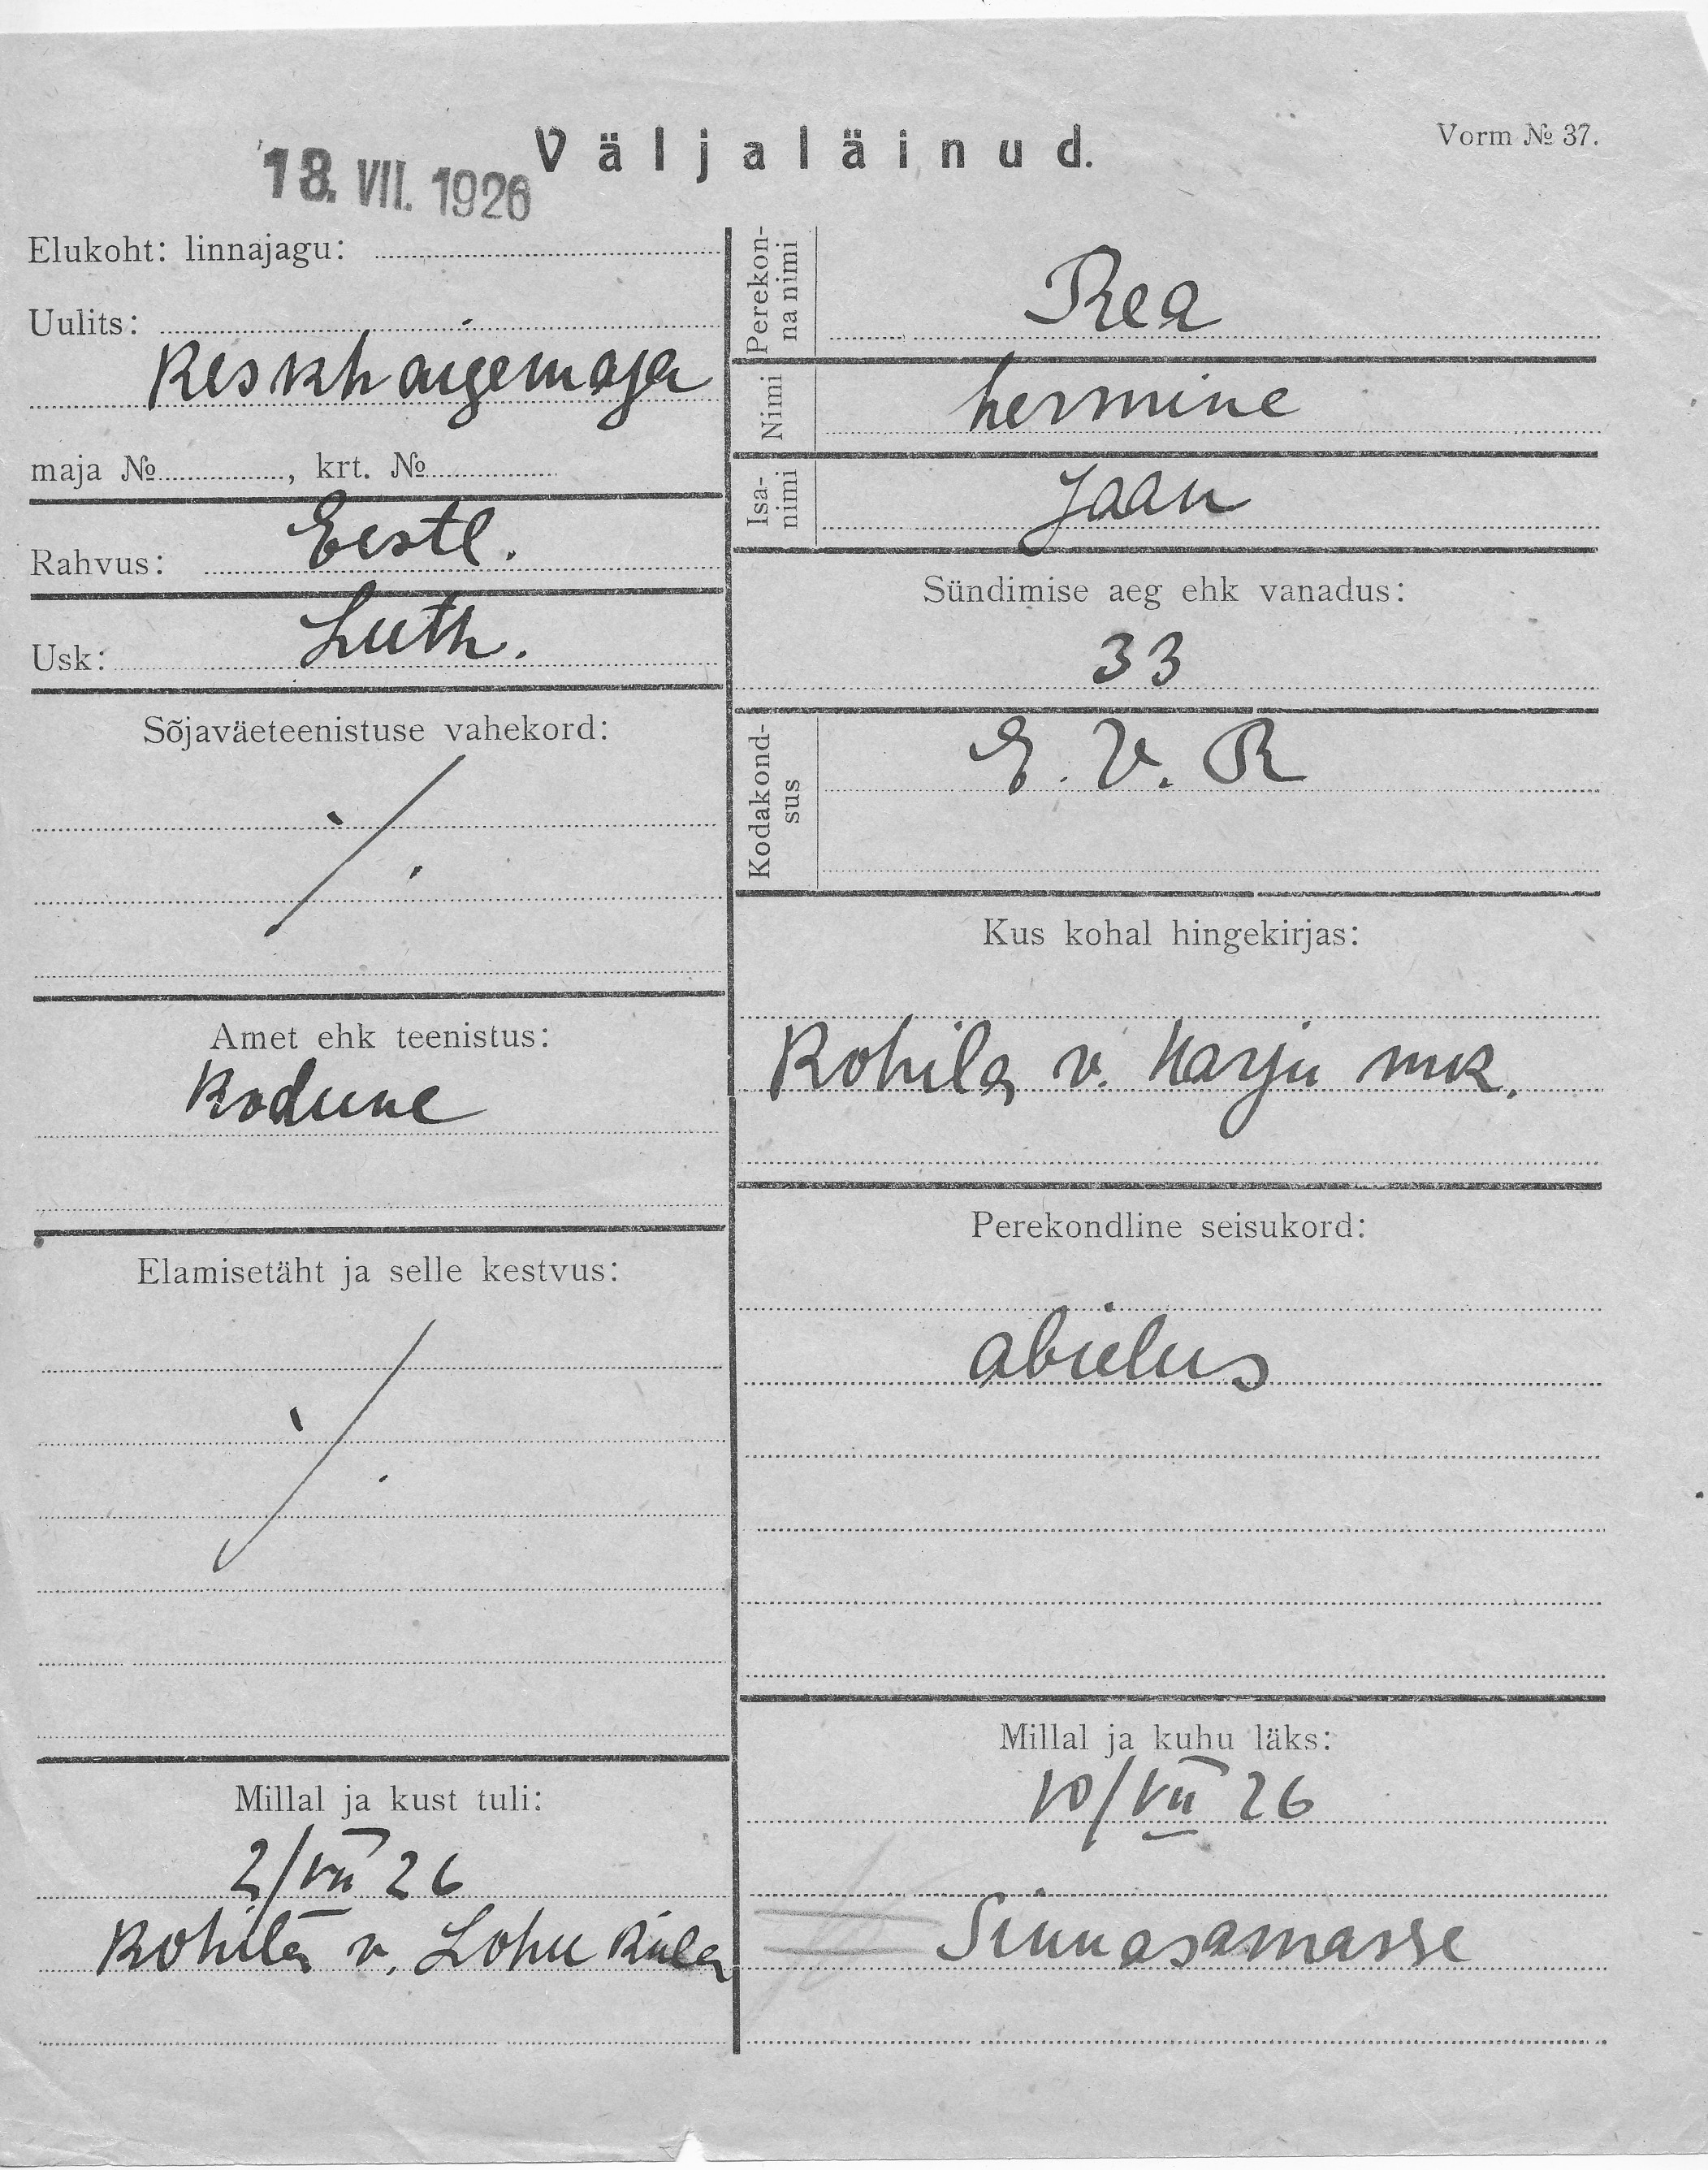 Väljaläinud.
Vorm № 37.
18. VII. 1926
Elukoht: linnajagu:
Uulits:
Keskhaigemaja
maja № , krt. №
Rahvus: Eestl.
Usk: Luth.
Sõjaväeteenistuse vahekord:
⁒
Amet ehk teenistus:
Kodune
Elamisetäht ja selle kestvus:
⁒
Millal ja kust tuli:
2/VII 26
Kohila v. Lohu küla
Perekon-
na nimi
Rea
Nimi
hermine
Isa-
nimi
Jaan
Sündimise aeg ehk vanadus:
33
Kodakond-
sus
E. V. R
Kus kohal hingekirjas:
Kohila v. Harju mk.
Perekondline seisukord:
abielus
Millal ja kuhu läks:
10/VII 26
Sinnasamasse